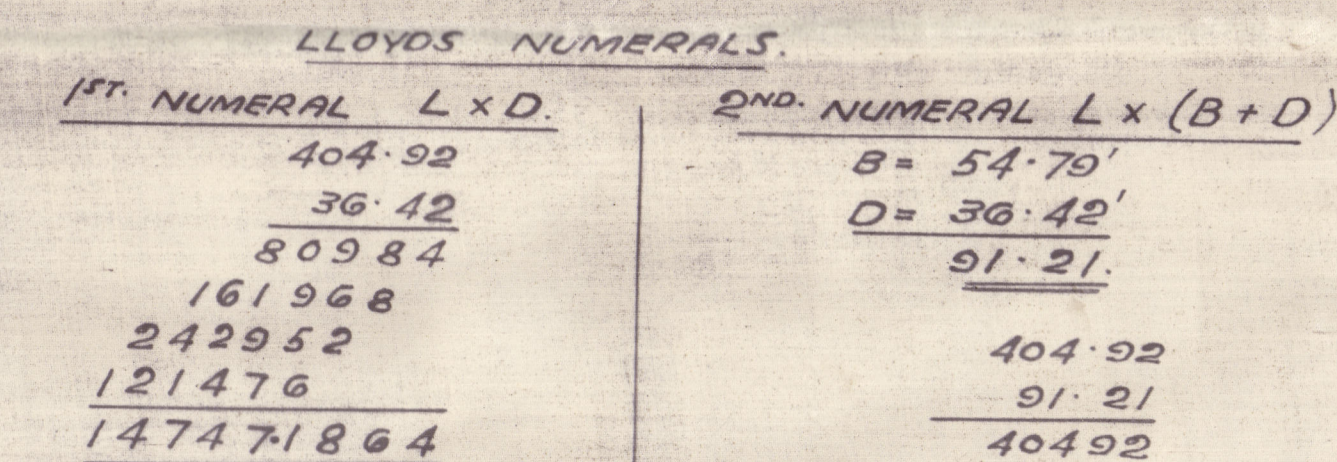 LLOYDS NUMERALS.
1ST. NUMERAL L x D.
404.92
36.42
80984
161968
242952
121476
14747.1864
2ND. NUMERAL L x (B + D)
B = 54.79'
D = 36.42'
91.21.
404.92
91.21
40492